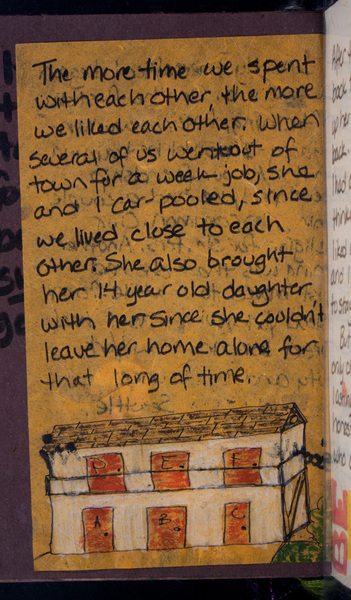 The more time we spent
with each other, the more
we liked each other. When
several of us went out of
town for a week-job, she
and I car-pooled, since
we lived close to each
other. She also brought
her 14 year old daughter
with her since she couldn't
leave her home alone for
that long of time.
D E F
A B C
After
back
her
back.
I had
think
liked
and I
to
But
only
who
BE